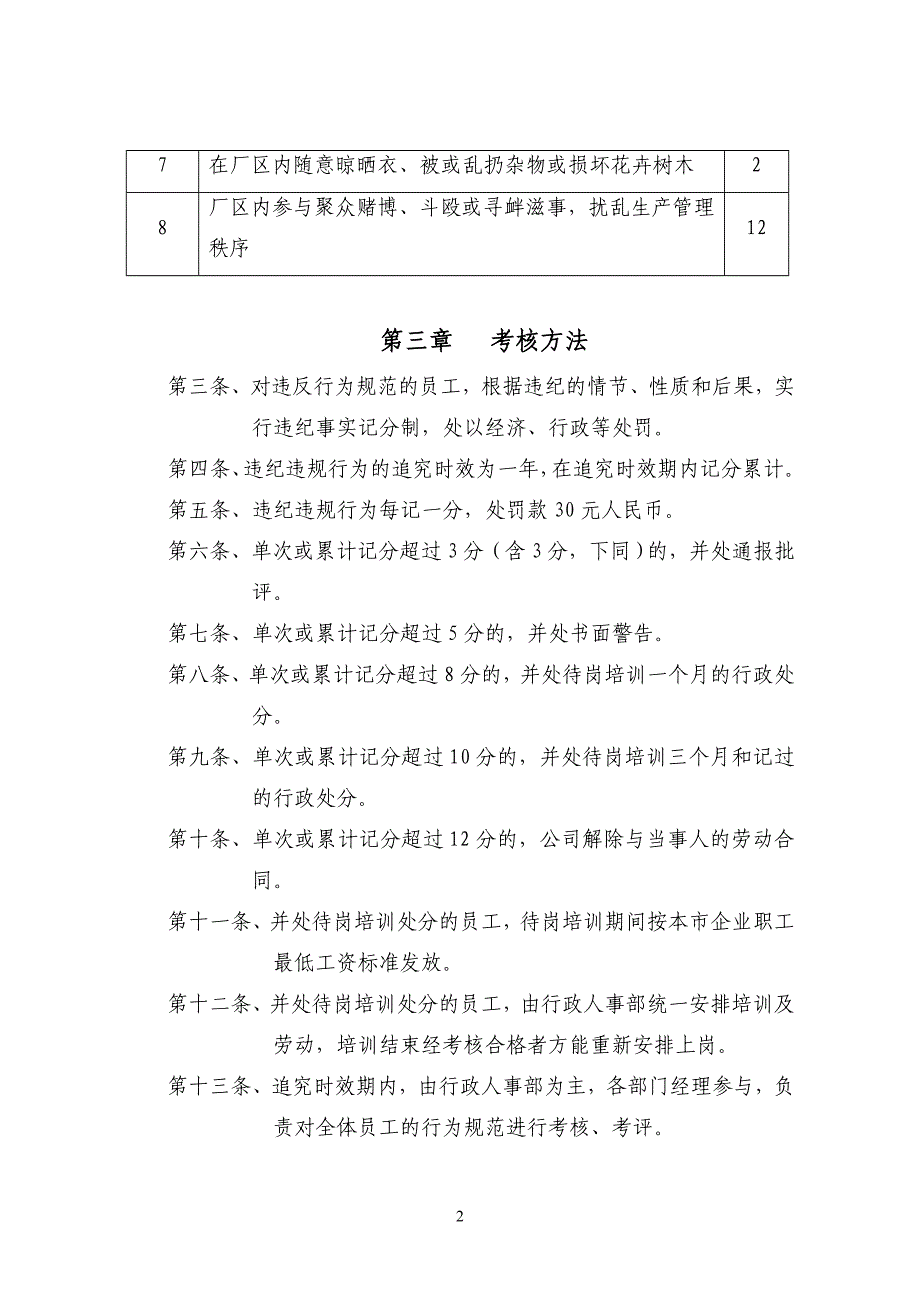 7 在厂区内随意晾晒衣、被或乱扔杂物或损坏花卉树木 2
8 厂区内参与聚众赌博、斗殴或寻衅滋事，扰乱生产管理 12
秩序
第三章 考核方法
第三条、对违反行为规范的员工，根据违纪的情节、性质和后果，实
行违纪事实记分制，处以经济、行政等处罚。
第四条、违纪违规行为的追究时效为一年，在追究时效期内记分累计。
第五条、违纪违规行为每记一分，处罚款 30 元人民币。
第六条、单次或累计记分超过 3 分（含 3 分，下同）的，并处通报批
评。
第七条、单次或累计记分超过 5 分的，并处书面警告。
第八条、单次或累计记分超过 8 分的，并处待岗培训一个月的行政处
分。
第九条、单次或累计记分超过 10 分的，并处待岗培训三个月和记过
的行政处分。
第十条、单次或累计记分超过 12 分的，公司解除与当事人的劳动合
同。
第十一条、并处待岗培训处分的员工，待岗培训期间按本市企业职工
最低工资标准发放。
第十二条、并处待岗培训处分的员工，由行政人事部统一安排培训及
劳动，培训结束经考核合格者方能重新安排上岗。
第十三条、追究时效期内，由行政人事部为主，各部门经理参与，负
责对全体员工的行为规范进行考核、考评。
2